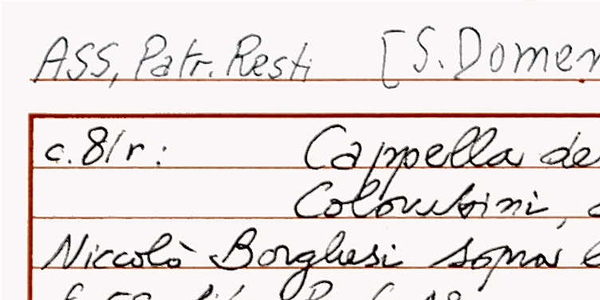 ASS, Patr. Resti [S. Domen
c. 81r: Cappella de
Colombini,
Niccolò Borghesi sopra